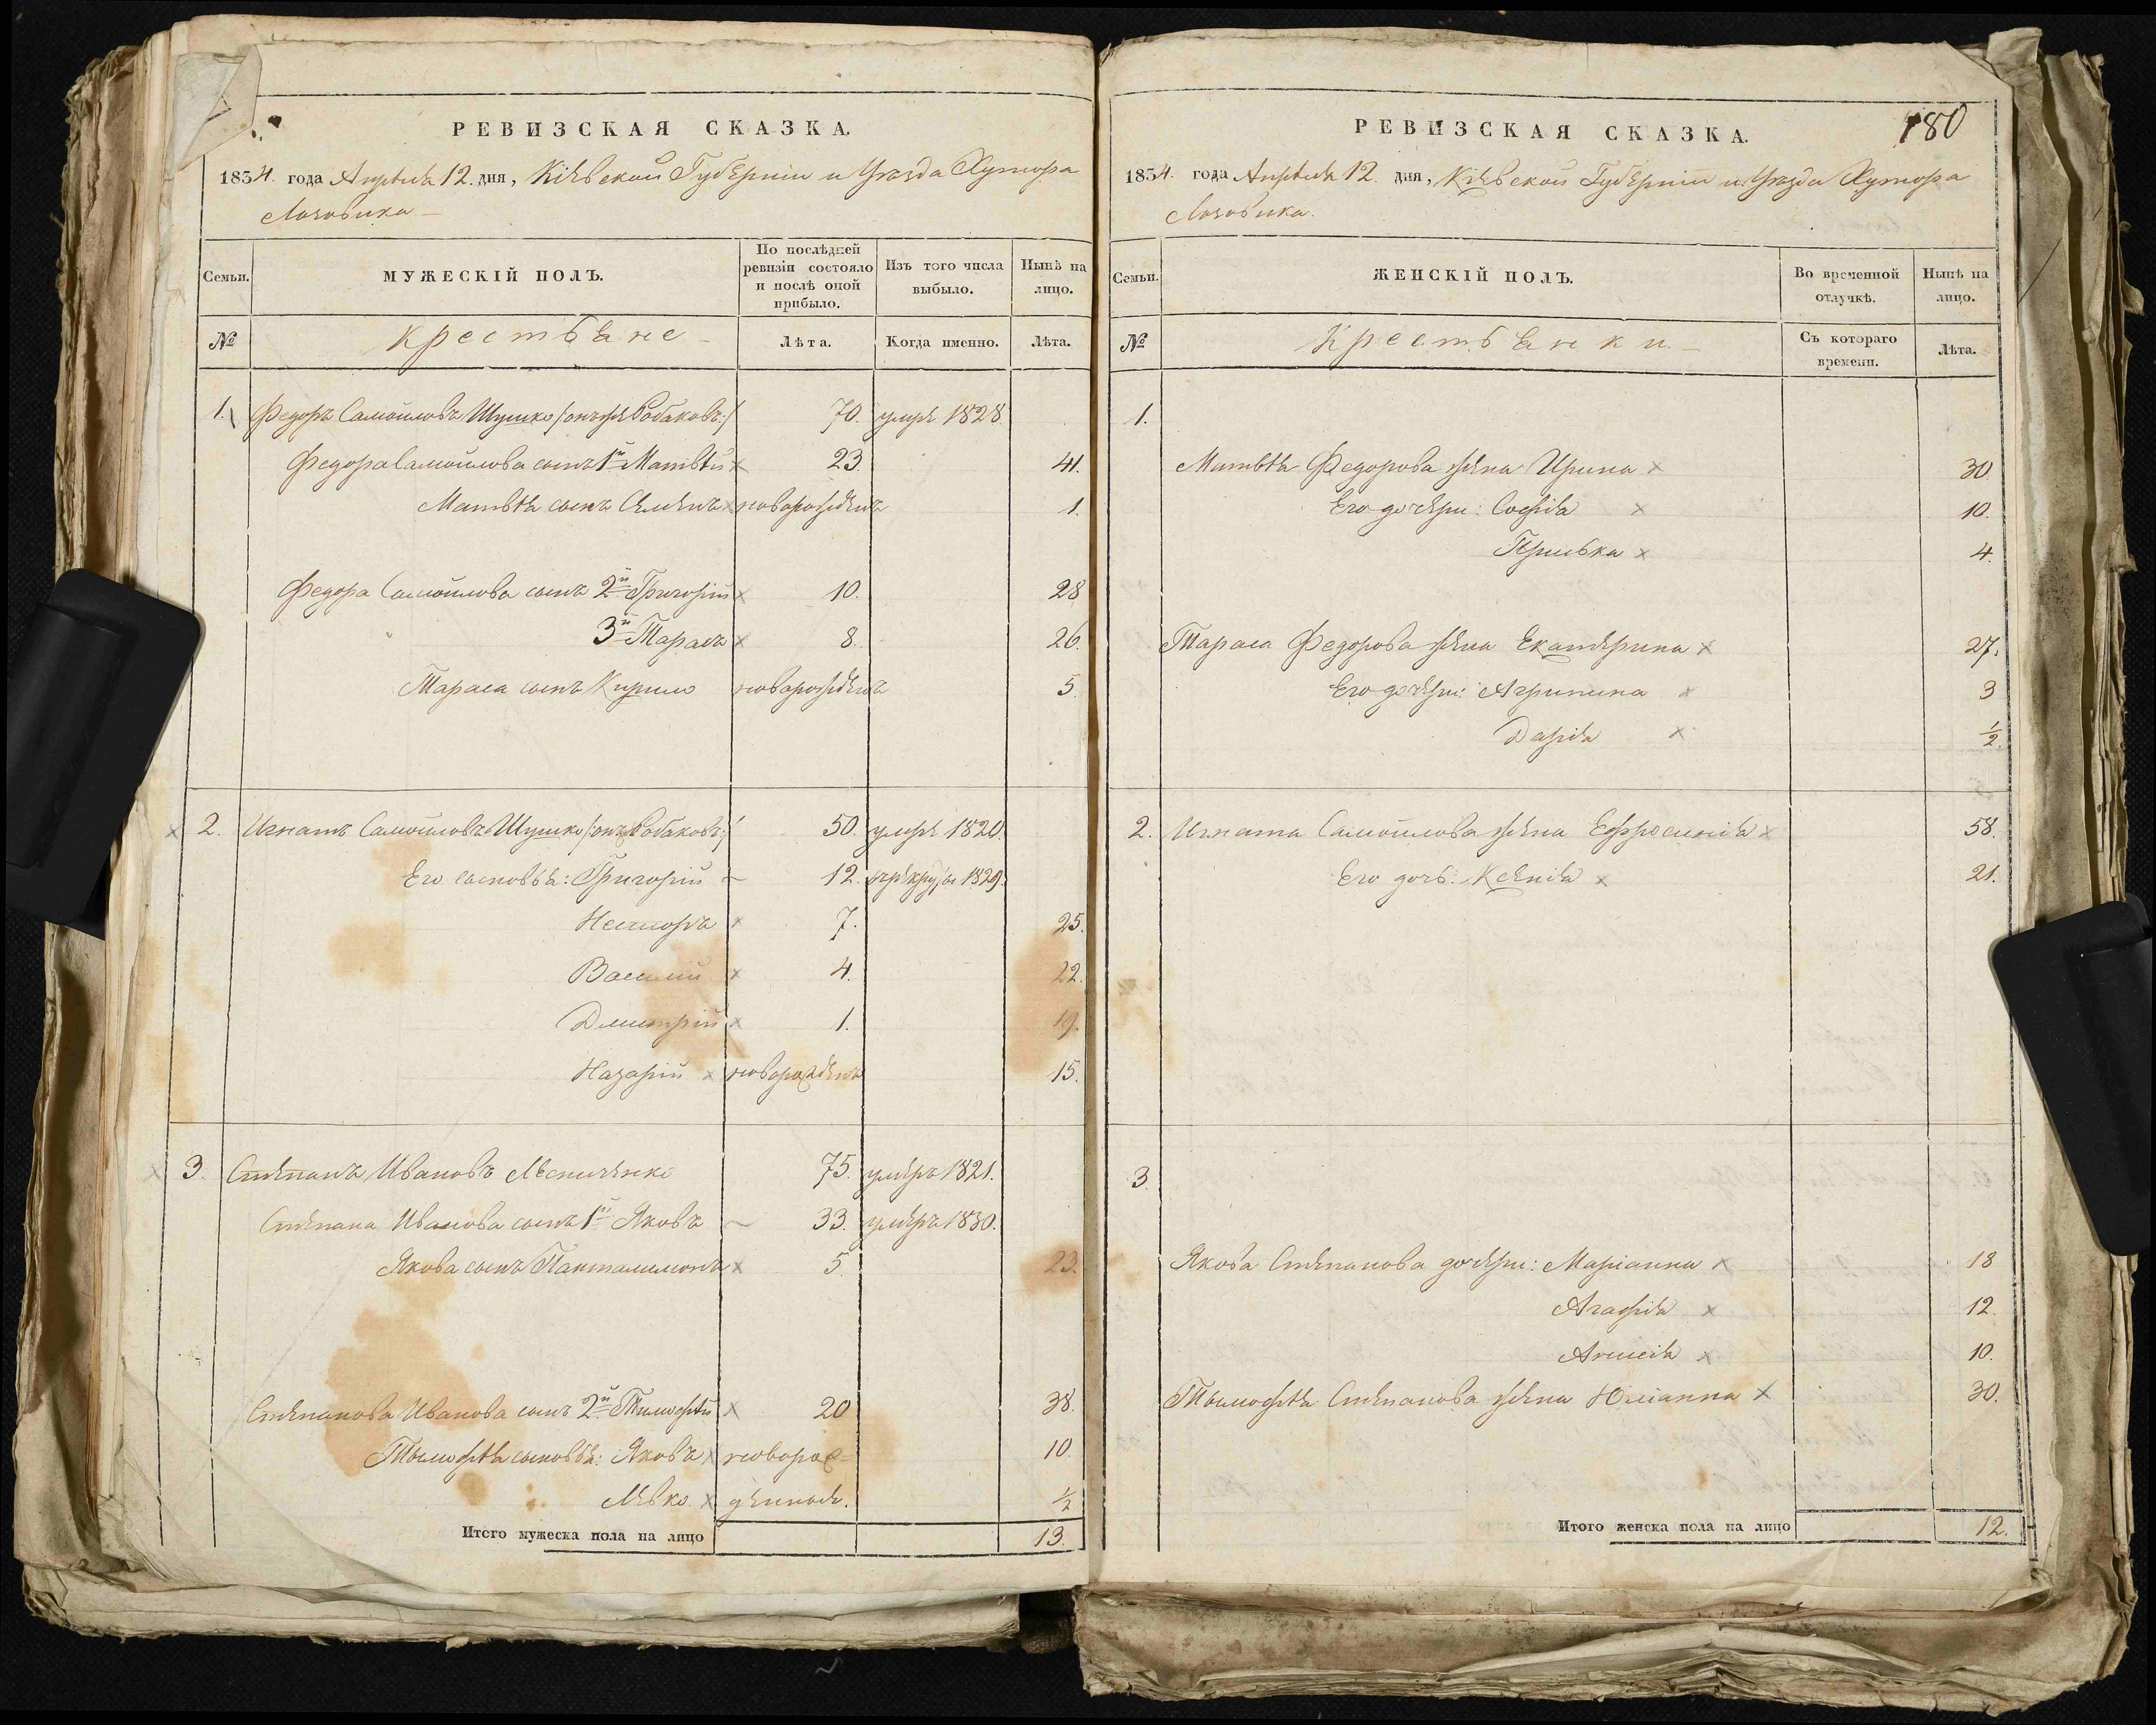 РЕВИЗСКАЯ СКАЗКА.
1834. года Апрѣля 12. дня, Кіевской Губерніи и Уѣзда Хутора
Лозовика
Семьи.
МУЖЕСКІЙ ПОЛЪ.
По послѣдней ревизіи состояло и послѣ оной прибыло.
Изъ того числа выбыло.
Нынѣ на лицо.
№
Крестьяне
Лѣта.
Когда именно.
Лѣта.
1. Федоръ Самойловъ Шушко /: онъже Собаковъ :/ 70. умре 1828
Федора Самойлова сынъ 1й Матвѣй 23. 41.
Матвѣя сынъ Семенъ новорожденъ 1.
Федора Самойлова сынъ 2й Григорій 10. 28
3й Тарасъ 8. 26.
Тараса сынъ Кирило новорожденъ 5.
2. Игнатъ Самойловъ Шушко /: онъже Собаковъ :/ 50. умре 1820.
Его сыновья: Григорій 12. 1829.
Несторъ 7. 25.
Василій 4. 22.
Дмитрій 1. 19.
Назарій новорожденъ 15.
3. Степанъ Ивановъ 75. умеръ 1821.
Степана Иванова сынъ 1й Яковъ 33. умеръ 1830.
Якова сынъ Панталимонъ 5. 23.
Степанова Иванова сынъ 2й Тимофѣй 20 38.
Тымофѣя сыновья: Яковъ новорож- 10.
Левко денныя. ½
Итого мужеска пола на лицо 13.
РЕВИЗСКАЯ СКАЗКА.
180
1834. года Апрѣля 12. дня, Кіевской Губерніи и Уѣзда Хутора
Лозовика.
Семьи.
ЖЕНСКІЙ ПОЛЪ.
Во временной отлучкѣ.
Нынѣ на лицо.
№
Крестьянки.
Съ котораго времени.
Лѣта.
1.
Матвѣя Федорова жена Ирина 30.
Его дочери: Софія 10.
Приська 4.
Тараса Федорова жена Екатерина 27.
Его дочери: Агрипина 3
Дарія ½.
2. Игната Самойлова жена Ефросинія 58.
Его дочь: Ксенія 21.
3.
Якова Степанова дочери: Маріанна 18
Агафія 12.
10.
Тымофѣя Степанова жена Юліанна 30.
Итого женска пола на лицо 12.